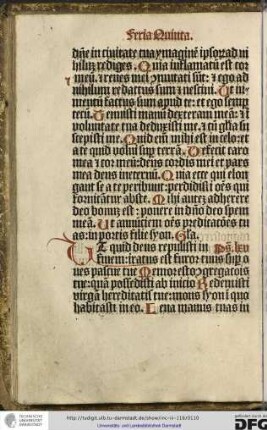 Feria Quinta.
dñe in ciuitate tua ymaginē ipsoꝝ ad ni
hilum rediges. Quia inflāmatū est cor
meū: ⁊ renes mei ꝯmutati sūt: ⁊ ego ad
nihilum redactus sum ⁊ nesciui. Ut iu
mentū factus sum apud te: et ego semp
tecū. Tenuisti manū dexteram meā: ⁊ ī
voluntate tua deduxisti me. ⁊ cū glīa su
scepisti me. Quid eni mihi est in celo: et
a te quid volui sup terrā. Defecit caro
mea ⁊ cor meū: deus cordis mei et pars
mea deus in eternū. Quia ecce qui elon
gant se a te peribunt: perdidisti oēs qui
fornicātur abs te. Mihi autē adherere
deo bonū est: ponere in dño deo spem
meā. Ut annūciem oēs predicatōes tu
as: in portis filie syon. Gła.
Ut quid deus repulisti in
finem: iratus est furor tuus sup o
ues pascue tue Memor esto ꝯgregatōis
tue: quā possedisti ab inicio Redemisti
virgā hereditatis tue: mons syon ī quo
habitasti in eo. Leua manus tuas in
http://tudigit.ulb.tu-darmstadt.de/show/inc-ii-119/0110
Universitäts- und Landesbibliothek Darmstadt